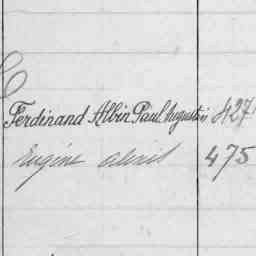 Ferdinand Albin Paul Augustin 427
Eugéne alexis 475